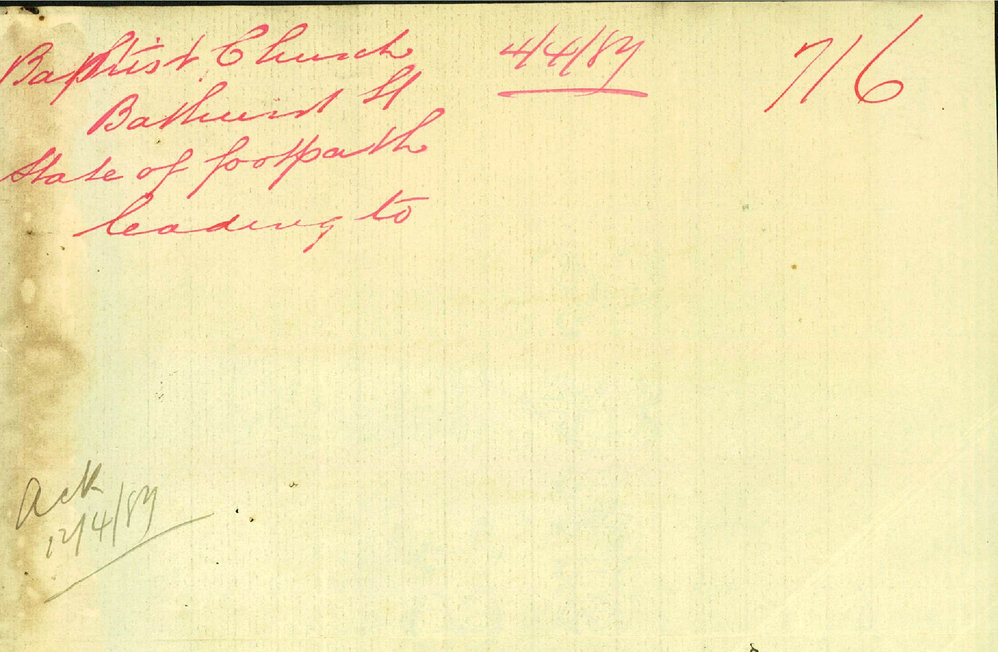 Baptist Church
Bathurst St
State of footpath
leading to
4/4/87
716
Ack
12/4/87